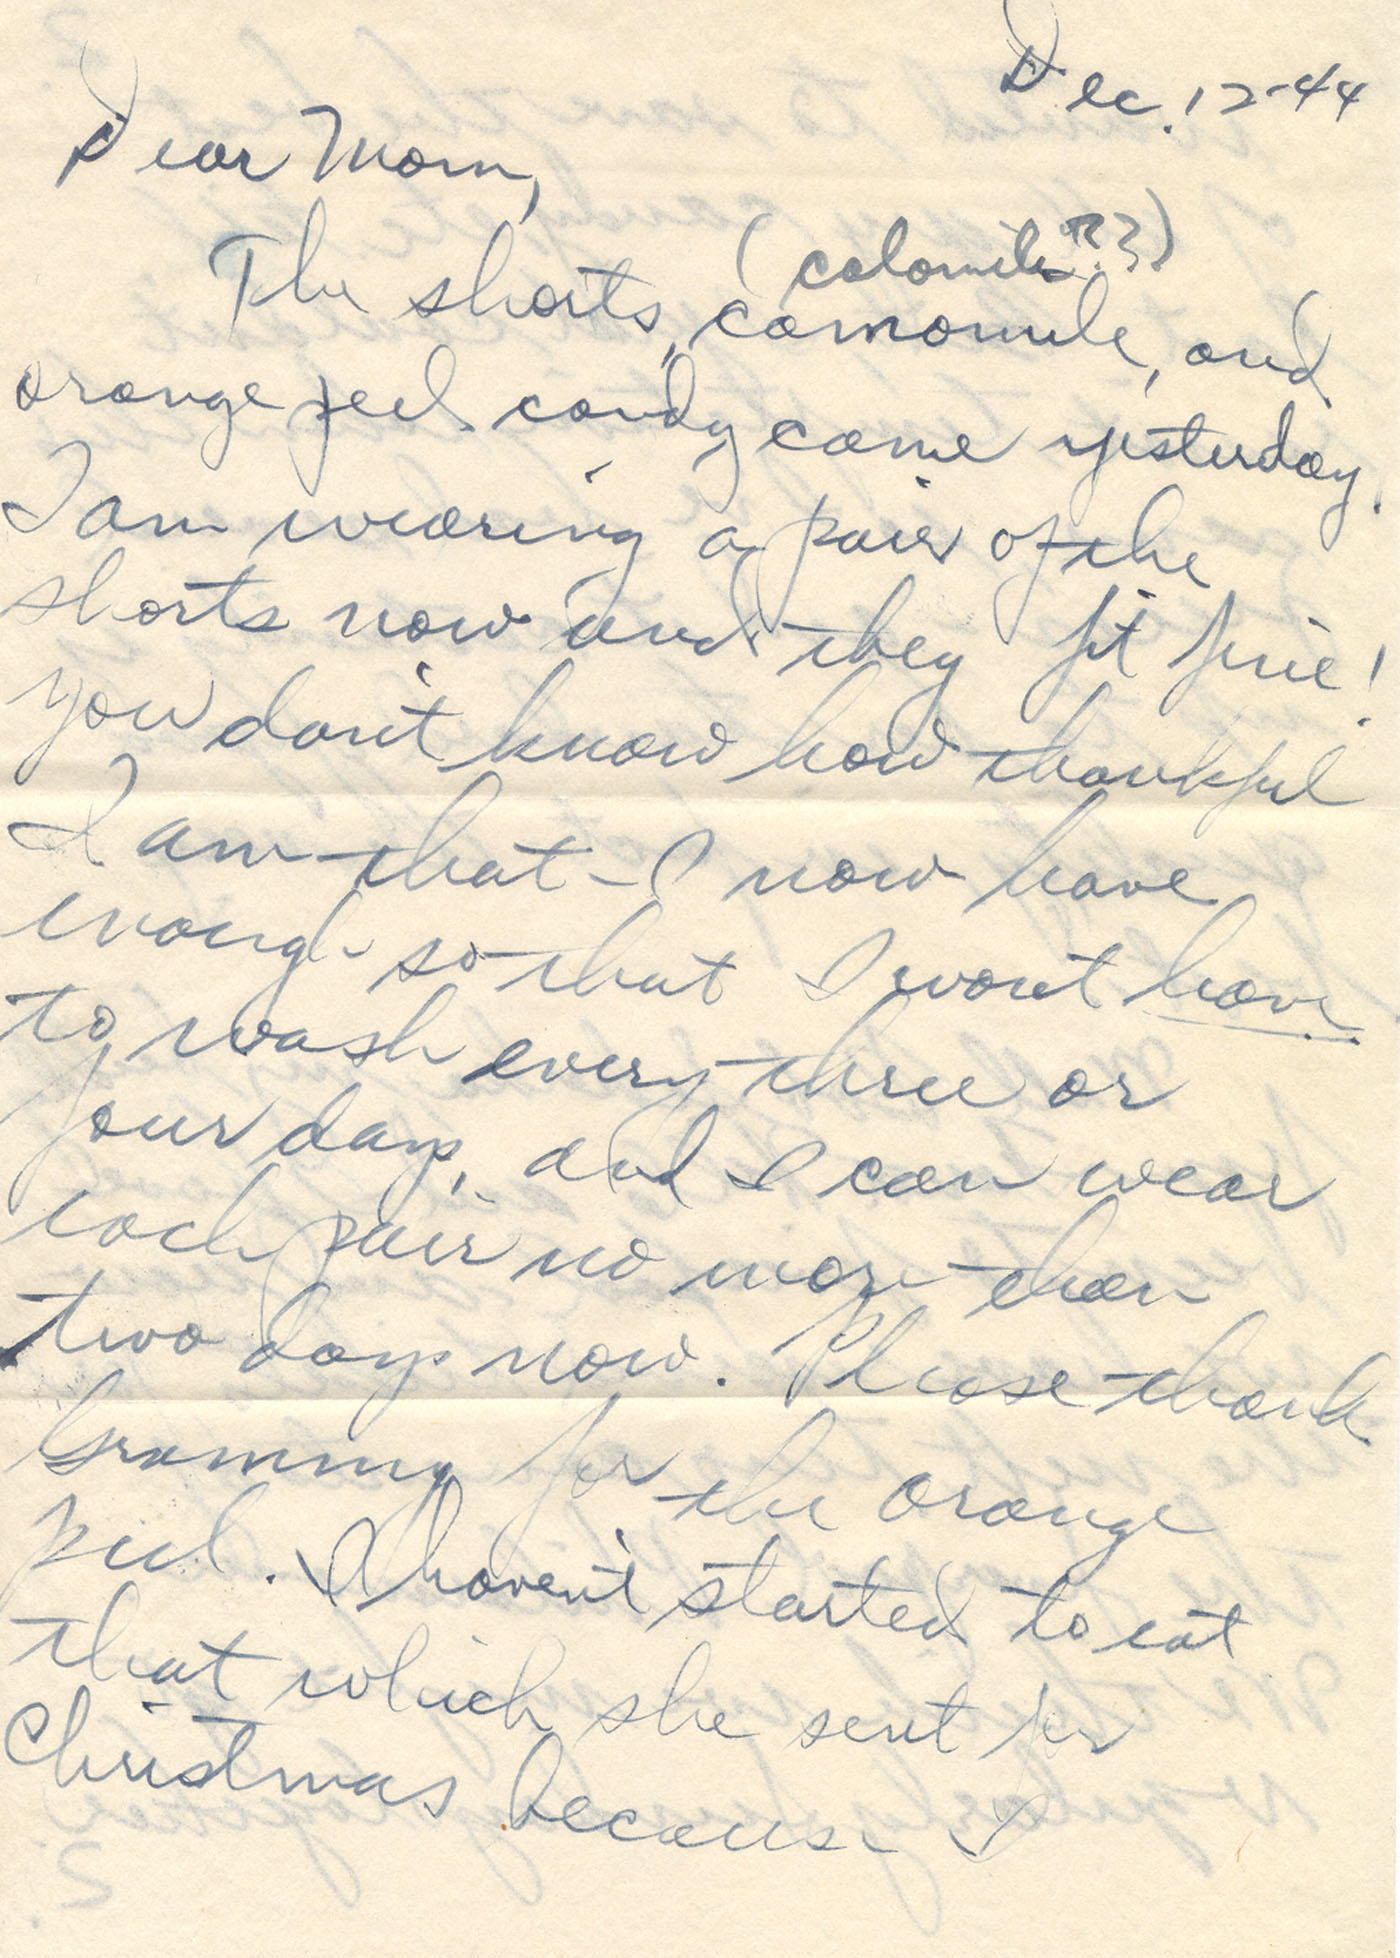 Dec. 12-44
Dear Mom,
(colomile???)
The shorts, camomile, and
orange peel candy came yesterday.
I am wearing a pair of the
shorts now and they fit fine!
You don't know how thankful
I am that I now have
enough so that I won't have
to wash every three or
four days, and I can wear
each pair no more than
two days now. Please thank
Grammy for the orange
peel. I haven't started to eat
that which she sent for
Christmas because I